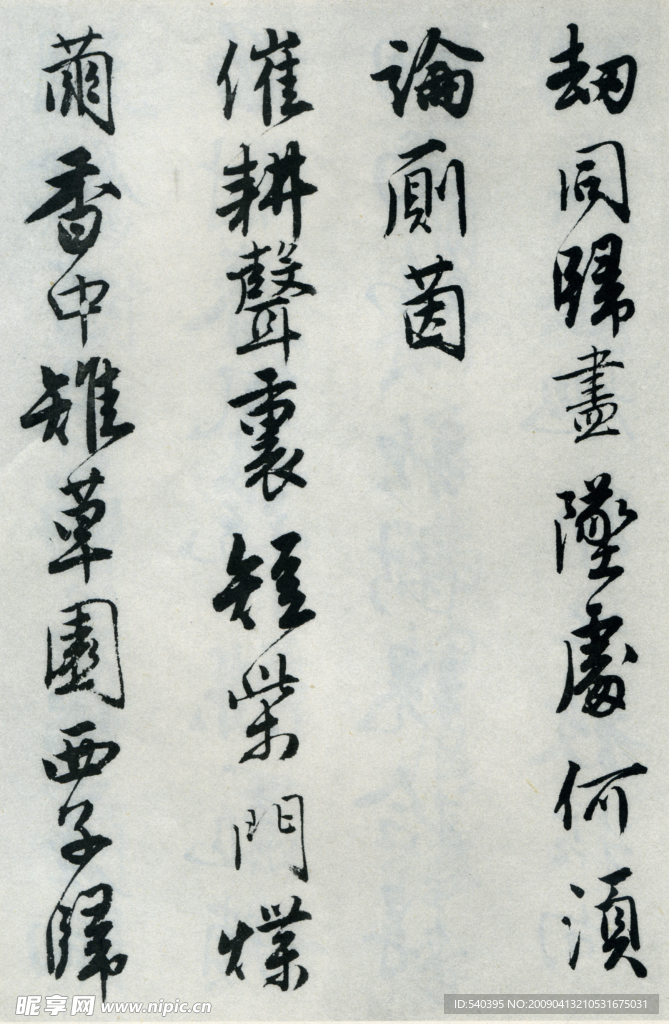 劫同歸盡墜處何須
論厠茵
催耕聲裏短柴門煠
繭香中雉草園西子歸
昵享网 www.nipic.cn
ID:540395 NO:20090413210531675031